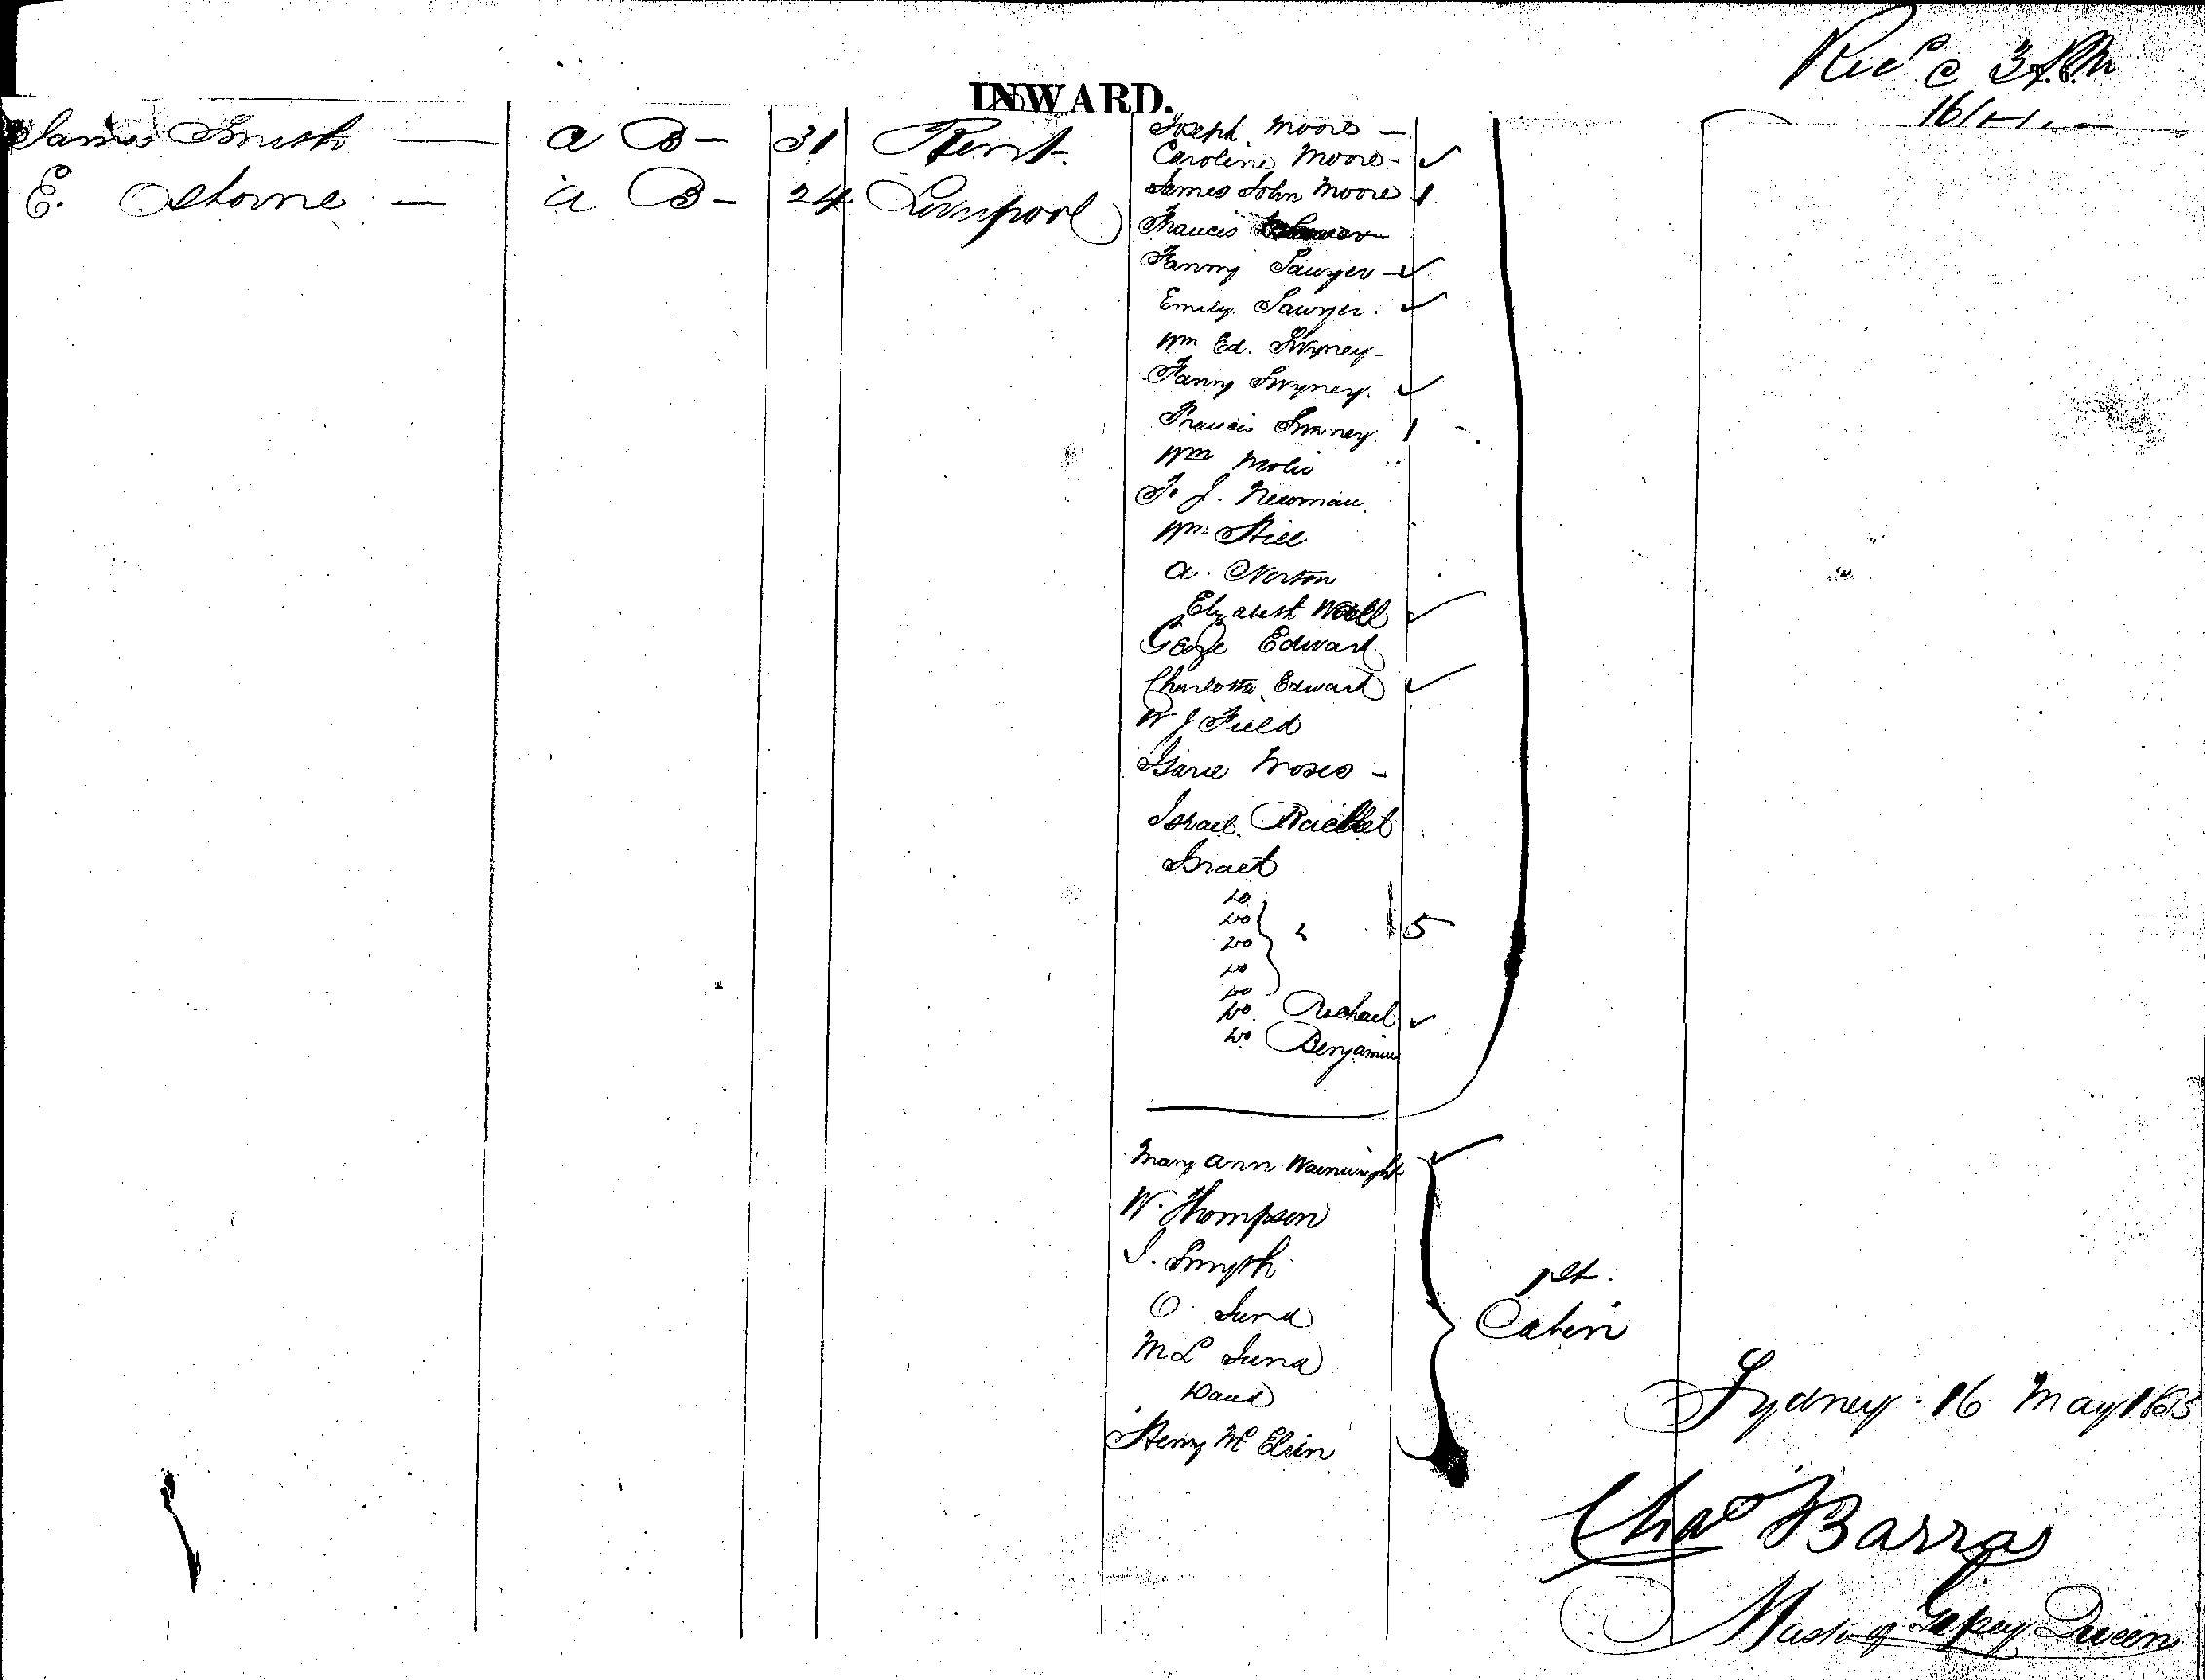 Recd @ 3 PM
INWARD.
James Smith — a B — 31 Kent
E. Osborne — a B — 24 Liverpool
Joseph Moore —
Caroline Moore - ✓
James John Moore 1
Francis
Fanny Sawyer - ✓
Emily Sawyer. ✓
Wm Ed. Swyney -
Fanny Swyney. ✓
Francis Swyney 1
Wm
F. J. Newman.
Wm Hill
A. Norton
Elizabeth Wall ✓
George Edward
Charlotte Edward ✓
W J Field
Moses -
Israel Rachel
Israel
Do
Do
Do 5
Do
Do
Do Rachael ✓
Do Benjamin
Mary Ann Wainwright ✓
W. Thompson
J. Smyth
O. Lund
M L Lund
David
Henry Mc
Cabin
Sydney. 16 May 1863
Chas Barras
Master of Gipsey Queen